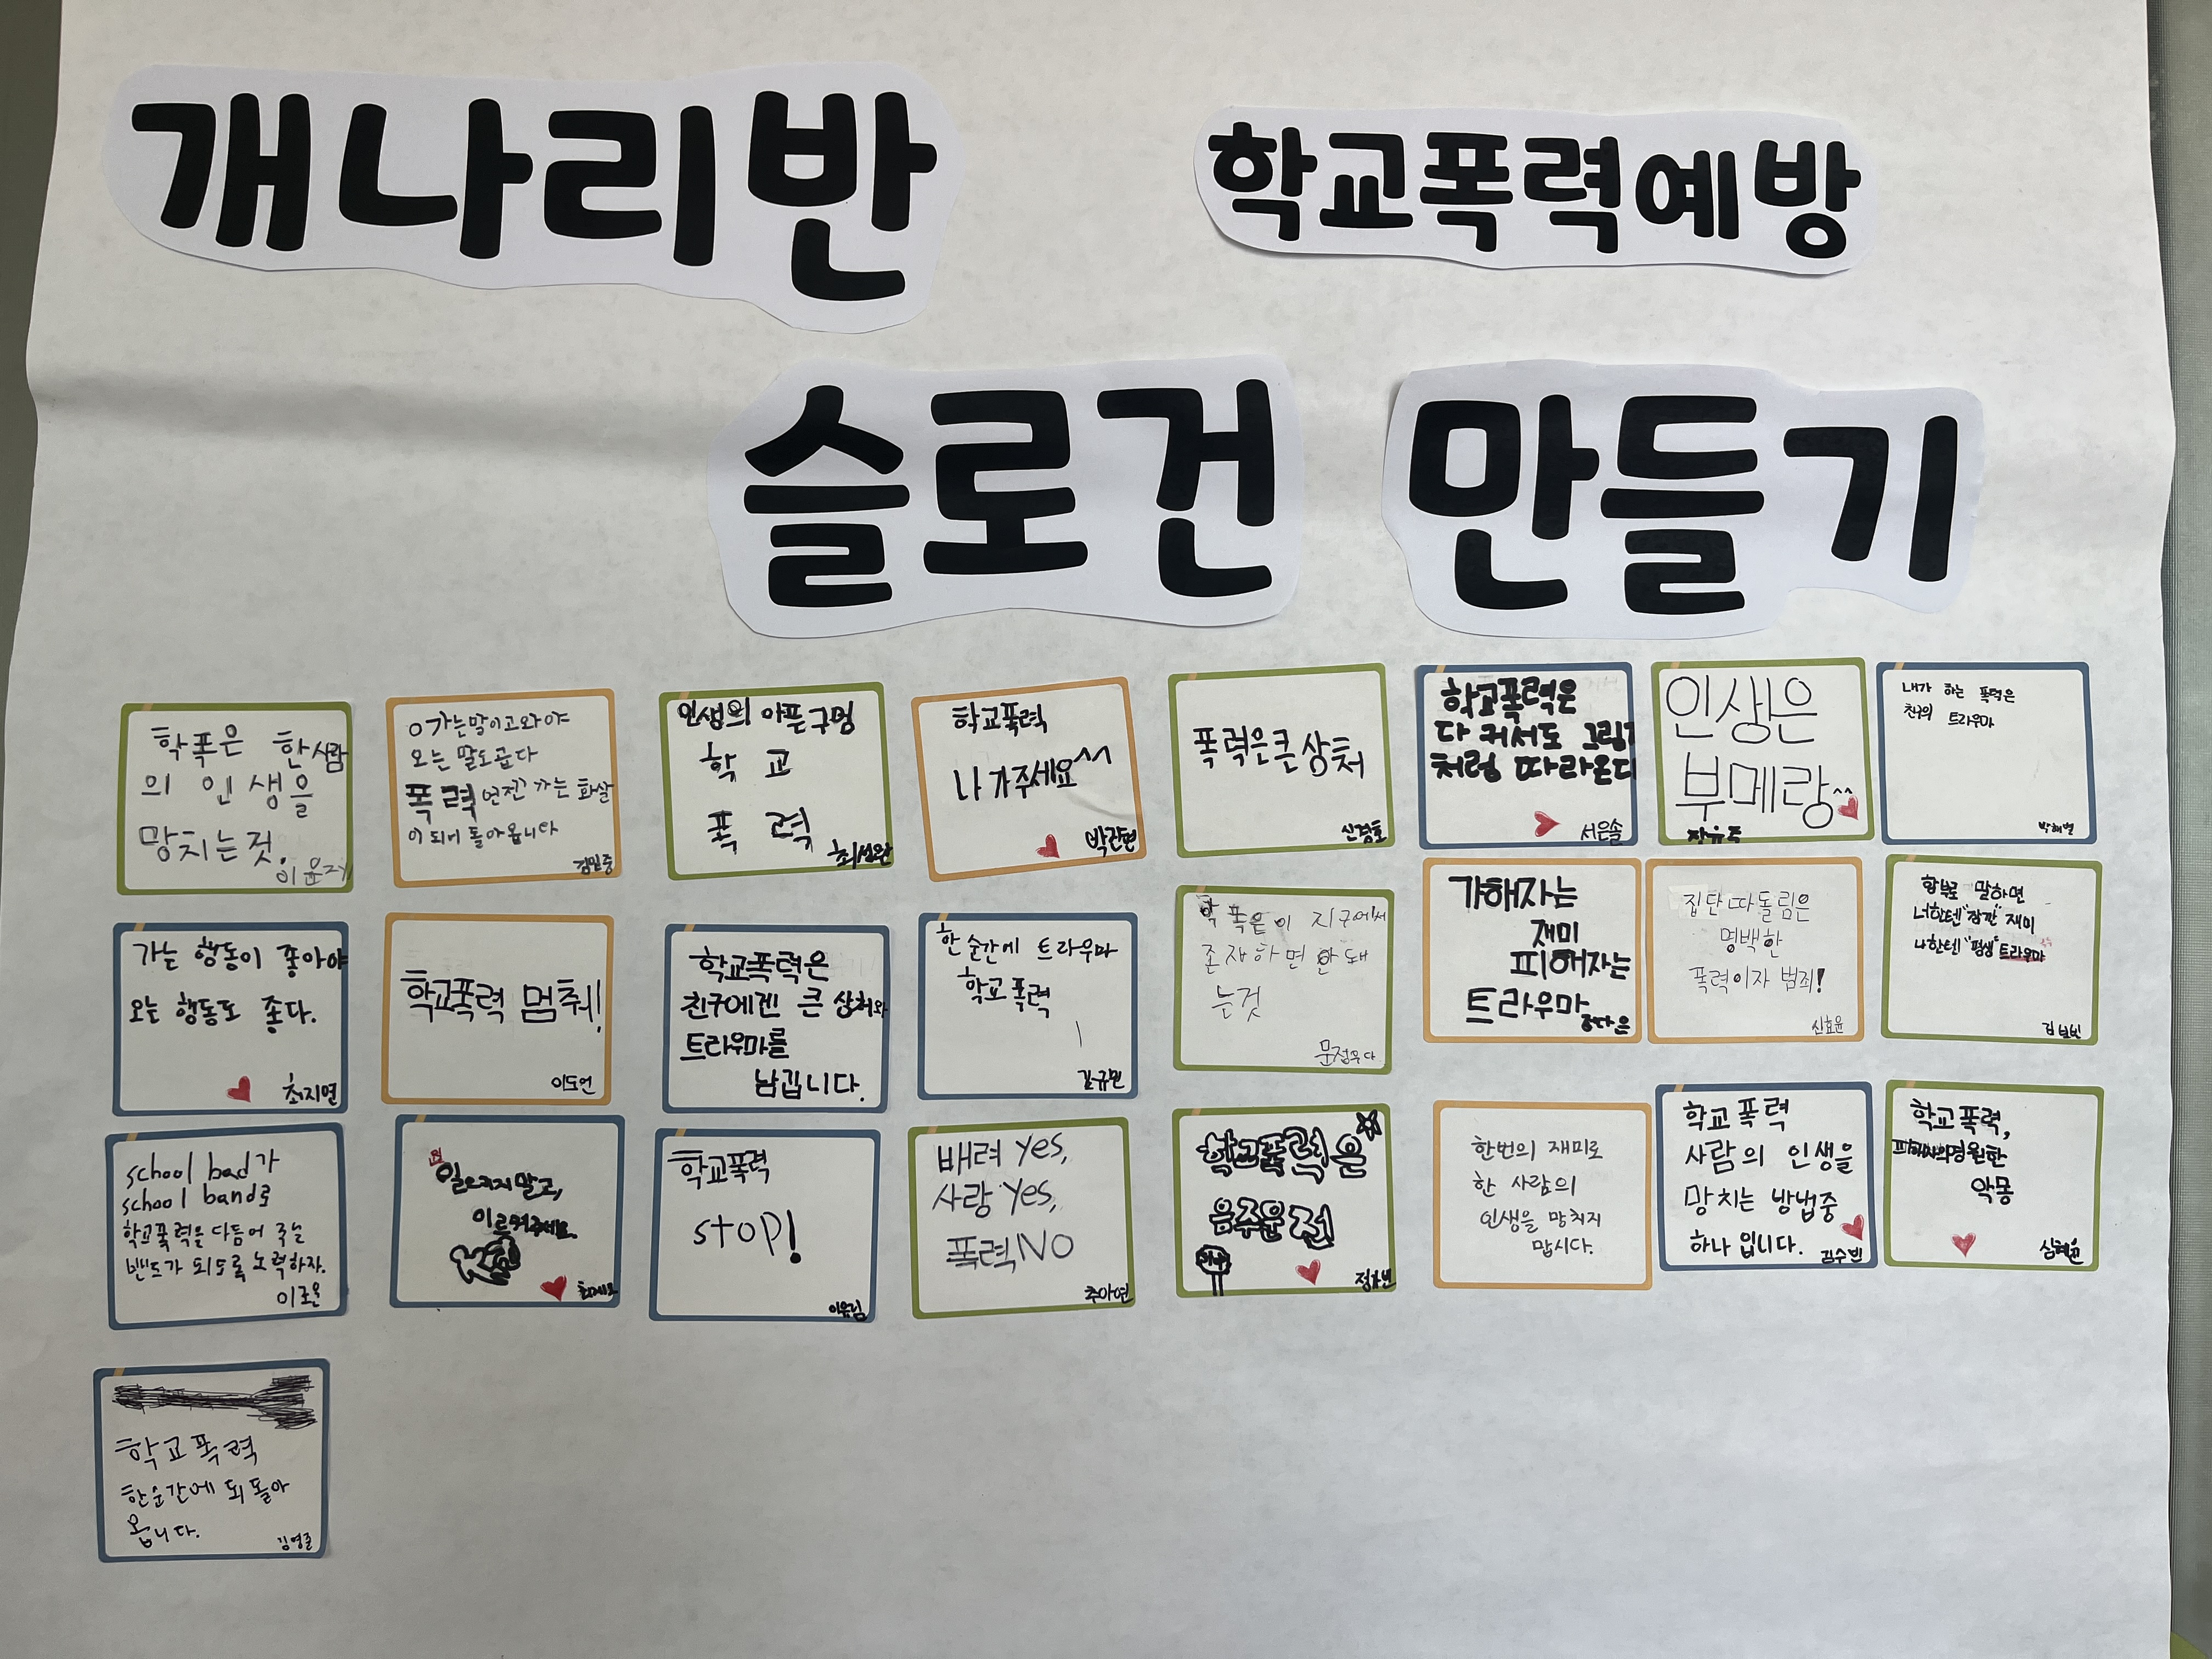 개나리반
학교폭력예방
슬로건 만들기
학폭은 한사람
의 인생을
망치는것.
가는말이고와야
오는 말도곱다
폭력 언젠가는 화살
이되어 돌아옵니다
김민중
인생의 아픈구멍
학교
폭력
최성완
학교폭력
나가주세요^^
폭력은큰상처
신경호
학교폭력은
다 커서도 그림자
처럼 따라온다
서은솔
인생은
부메랑^^
장유주
내가 하는 폭력은
친구의 트라우마
박혜별
가는 행동이 좋아야
오는 행동도 좋다.
최지연
학교폭력 멈춰!
이도언
학교폭력은
친구에겐 큰 상처와
트라우마를
남깁니다.
한 순간에 트라우마
학교폭력
김규민
학폭은이 지구에서
존재하면 안돼
는것
가해자는
재미
피해자는
트라우마
집단따돌림은
명백한
폭력이자 범죄!
신효윤
함부로 말하면
너한텐 "잠깐" 재미
나한텐 "평생" 트라우마
school bad가
school band로
학교폭력을 다듬어 주는
밴드가 되도록 노력하자.
일으키지말고,
이르켜주세요.
학교폭력
stop!
이유림
배려 yes,
사랑 yes,
폭력NO
추아연
학교폭력은
음주운전
한번의 재미로
한 사람의
인생을 망치지
맙시다.
학교폭력
사람의 인생을
망치는 방법중
하나 입니다.
김수빈
학교폭력,
피해자의영원한
악몽
심혜윤
학교폭력
한순간에 되돌아
옵니다.